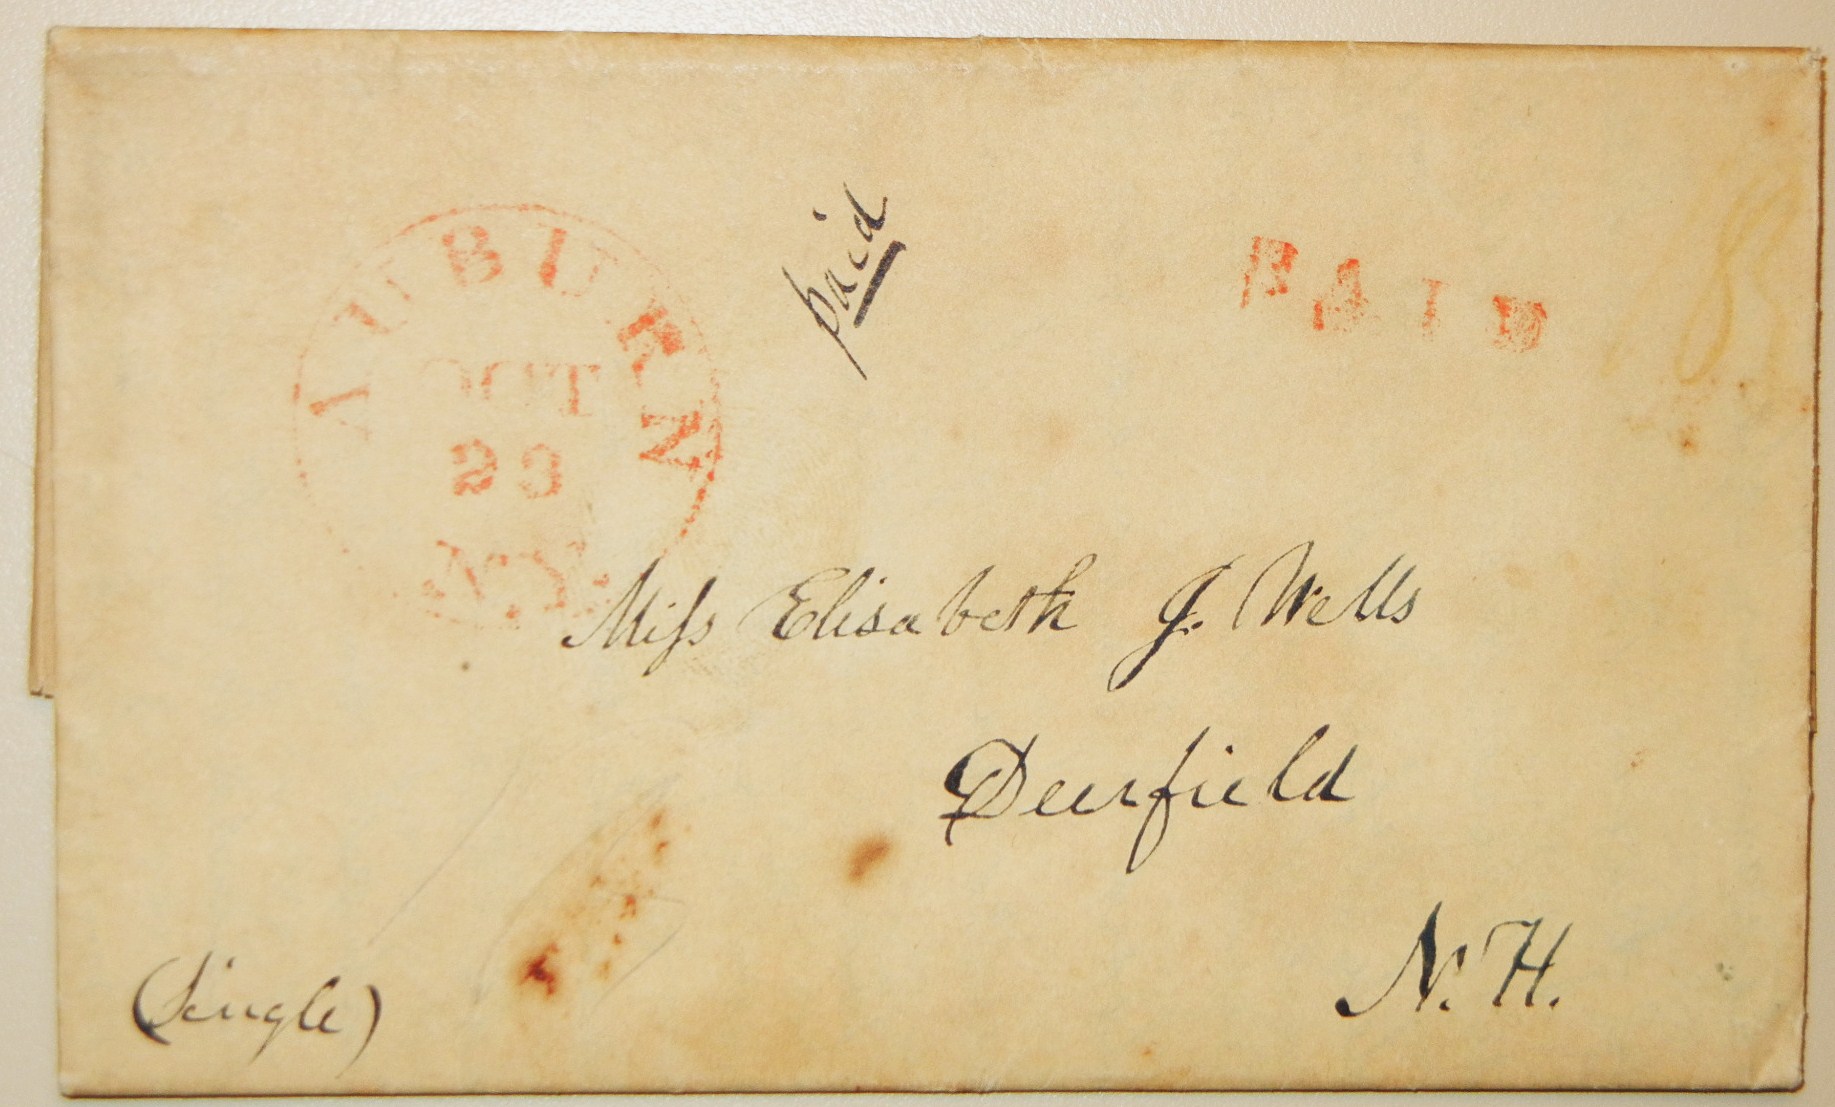 AUBURN
OCT
23
N.Y.
paid
PAID
Miss Elisabeth J. Wells
Deerfield
N. H.
(Single)